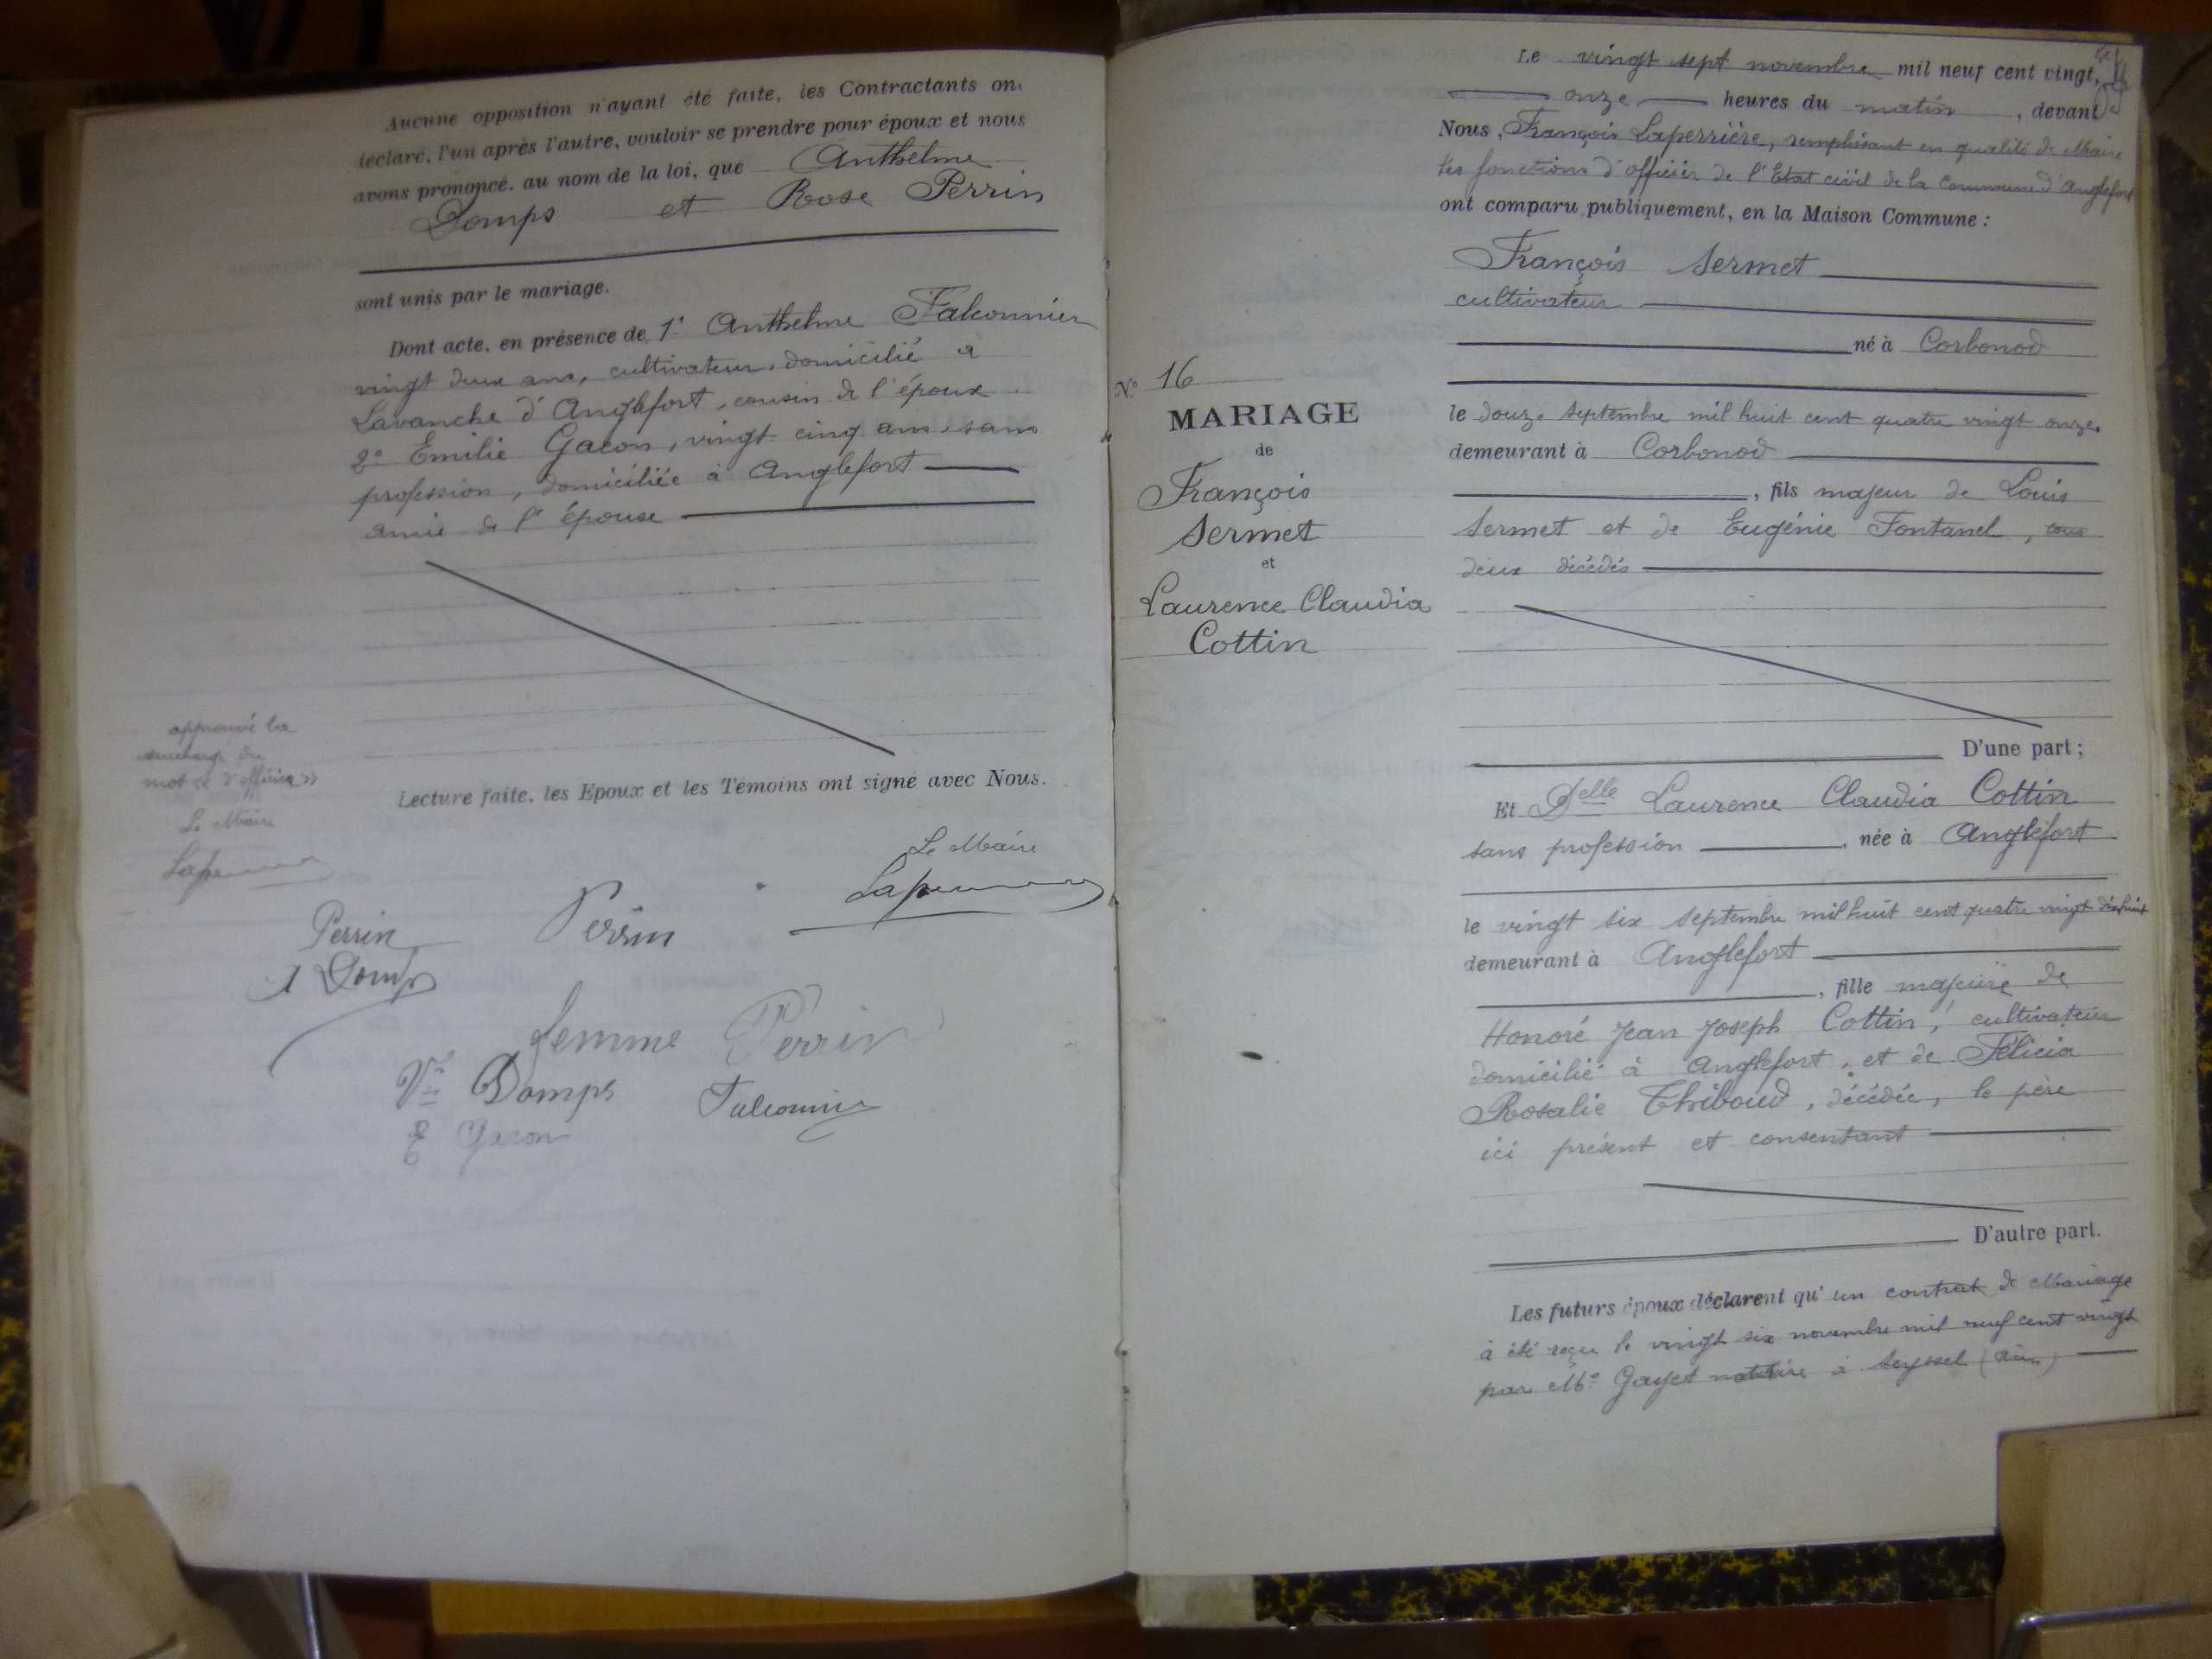 Aucune opposition n'ayant été faite, les Contractants on
déclaré, l'un après l'autre, vouloir se prendre pour époux et nous
avons prononcé, au nom de la loi, que Anthelme
Domps et Rose Perrin
sont unis par le mariage.
Dont acte, en présence de 1° Anthelme Falconnier
vingt deux ans, cultivateur, domicilié à
Lavanche d'Anglefort, cousin de l'époux
2° Emilie Gacon, vingt cinq ans, sans
profession, domiciliée à Anglefort
amie de l'épouse
approuvé la
surcharge du
mot « d'officier »
Le Maire
Lecture faite, les Epoux et les Témoins ont signé avec Nous.
Le Maire
Perrin
Perrin
A Domps
femme Perrin
Vve Domps
Falconnier
E Gacon
Le vingt sept novembre mil neuf cent vingt,
onze heures du matin, devant
Nous, François Laperrière, remplissant en qualité de Maire
les fonctions d'officier de l'Etat civil de la Commune d'Anglefort
ont comparu publiquement, en la Maison Commune :
François Sermet
cultivateur
né à Corbonod
le douze septembre mil huit cent quatre vingt onze
demeurant à Corbonod
, fils majeur de Louis
Sermet et de Eugénie Fontanel, tous
deux décédés
D'une part ;
N° 16
MARIAGE
de
François
Sermet
et
Laurence Claudia
Cottin
Et Delle Laurence Claudia Cottin
sans profession, née à Anglefort
le vingt six septembre mil huit cent quatre vingt dix huit
demeurant à Anglefort
, fille majeure de
Honoré Jean Joseph Cottin, cultivateur
domicilié à Anglefort, et de Félicia
Rosalie Thiboud, décédée, le père
ici présent et consentant
D'autre part.
Les futurs époux déclarent qu'un contrat de Mariage
à été reçu le vingt six novembre mil neuf cent vingt
par Me Gayet notaire à Seyssel (Ain)